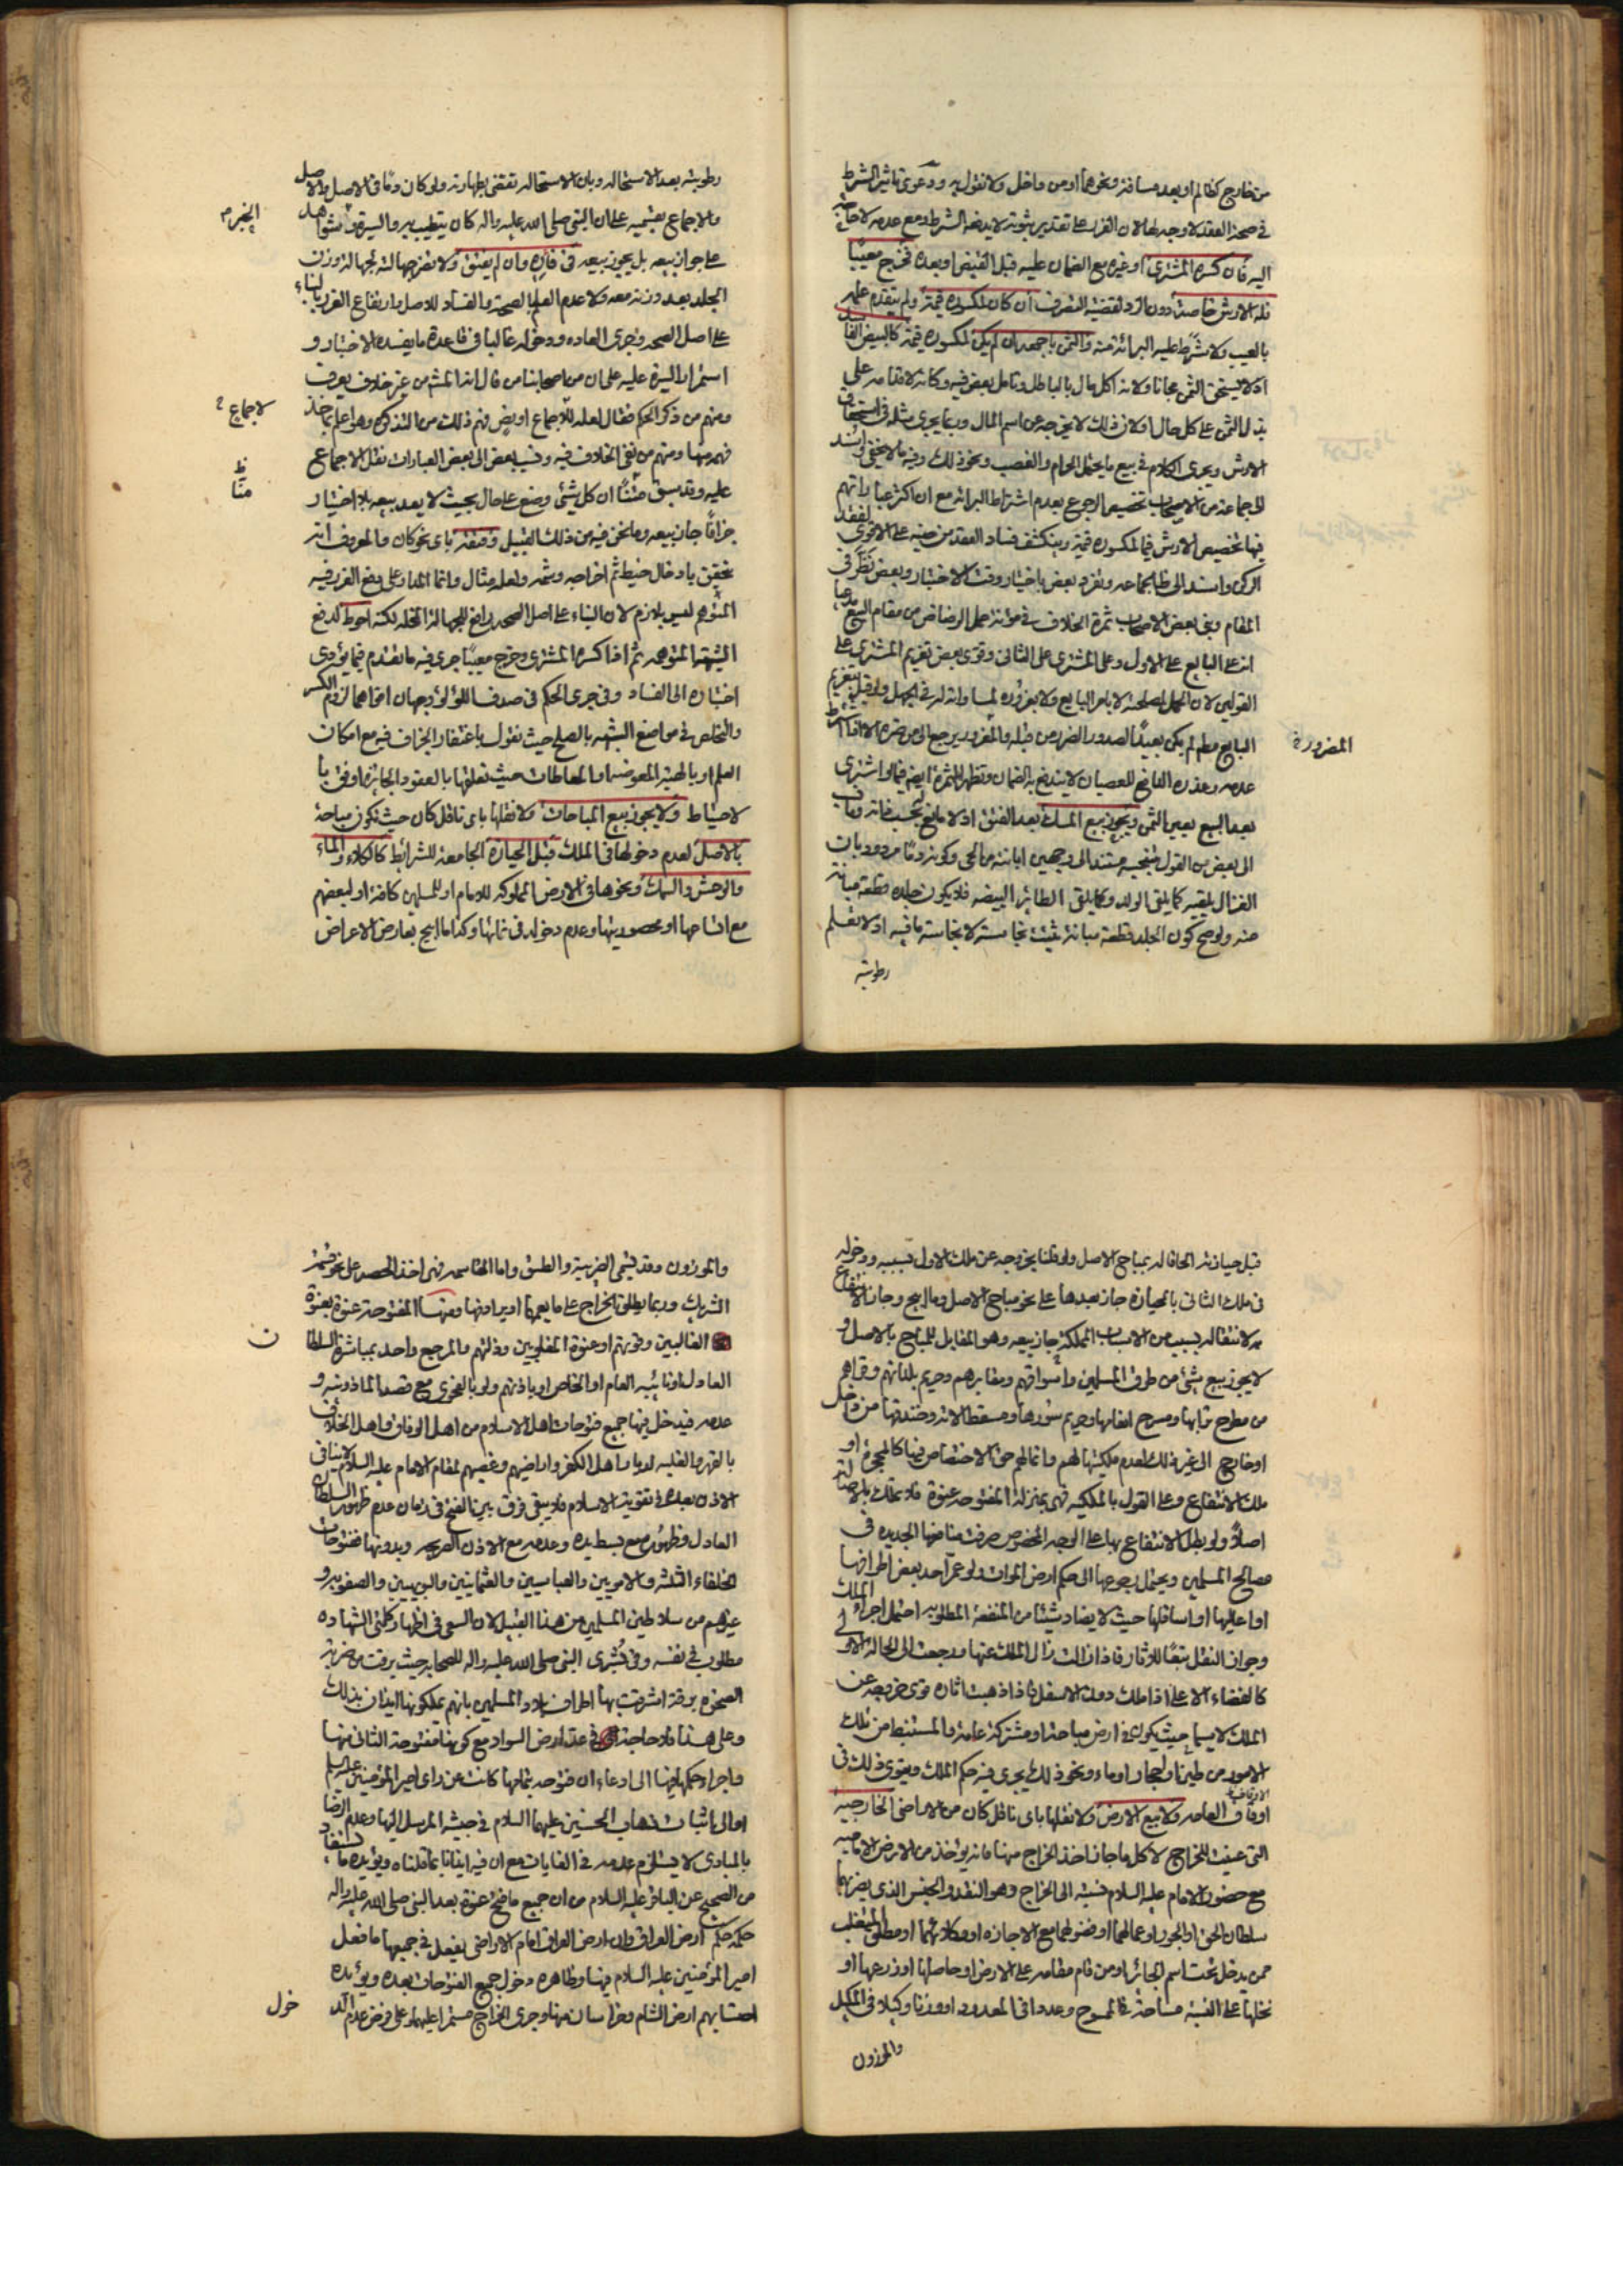 من خارج كظالم او بعد مسافة ونحوهما او من داخل ولا نقول به ودعوى تاثير الشرط
في صحة العقد لا وجه لها لان الغرر على تقدير ثبوته لا يدفعه الشرط ومع عدمه لا حاجة
اليه فان كسره المشتري او غيره مع الضمان عليه قبل القبض او بعده فخرج معيبا
فله الارش خاصة دون الرد لقضية التصرف ان كان لمكسوره قيمة ولم يتقدم علمه
بالعيب ولا شرط عليه البرائة منه والثمن باجمعه ان لم يكن لمكسوره قيمة كالبيض الفاسد
اذ لا يستحق الثمن مجانا ولانه اكل مال بالباطل وتامل بعض فيه وكانه لاقدامه على
بذل الثمن على كل حال او لان ذلك لا يخرجه عن اسم المال وربما يجري مثله في استحقاق
الارش ويجري الكلام في بيع ما يحتمل الحرام والغصب ونحو ذلك وفيه ما لا يخفى واسند
الى جماعة من الاصحاب تخصيص الرجوع بعدم اشتراط البرائة مع ان اكثر عباراتهم
فيها تخصيص الارش فيما لمكسوره قيمة وينكشف فساد العقد من حينه على الاقوى لفقد
الركن واسند الى ظ الجماعه وتفرد بعض باختيار وقت الاختبار وبعض نظر في
المقام وبنى بعض الاصحاب ثمرة الخلاف في مؤنة حمل الرضاض من مقام البيع مدعيا
انه على البايع على الاول وعلى المشتري على الثاني وقوى بعض تغريم المشتري على
القولين لان الحمل لمصلحته لا بامر البايع ولا بغروره لمساواته له في الجهل ولو قيل بتغريم
البايع مطلقا لم يكن بعيدا لصدور الضرر من قبله والمغرور يرجع الى من غره الا اذا شرط
المضرور خ
عدمه وعذره الدافع للعصيان لا يندفع به الضمان وتظهر الثمرة ايضا فيما لو اشترى
بعد البيع بعين الثمن ويجوز بيع المسك بعد الفتق اذ لا مانع بحسب ذاته وما
الى بعض من القول بتنجيسه مستندا الى وجهين ابانته من الحي وكونه دما مردود بان
الغزال يلقيه كما يلقي الولد وكما يلقي الطائر البيضه فلا يكون جلده قطعة مبانة
منه ولو صح كون الجلد قطعة مبانة ثبتت نجاسته لا نجاسة ما فيه اذ لا نعلم
رطوبته
رطوبته بعد الاستحاله وبان الاستحاله تقضي بطهارته ولو كان دما في الاصل والاصل
والاجماع بقسميه على ان النبي صلى الله عليه واله كان يتطيب به والسيرة شواهد
الخبر م
على جواز بيعه بل يجوز بيعه في فاره وان لم يفتق ولا تضر جهالته لجهالة وزن
الجلد بعد وزنه معه ولا عدم العلم بالصحة والفساد للاصل وارتفاع الغرر بالبناء
على اصل الصحة وجري العاده ودخوله غالبا في قاعدة ما يفسده الاختبار و
استمرار السيرة عليه على ان من اصحابنا من قال انه المشهور من غير خلاف يعرف
ومنهم من ذكر الحكم فقال لعله للاجماع او يض فهم ذلك من التذكرة وهو اعلم بما خذ
لاجماع خ
فهمه منها ومنهم من نفى الخلاف فيه ونسب بعض الى بعض العبارات نقل الاجماع
عليه وقد سبق منا ان كل شيء وضع على حال بحيث لا يعد بيعه بلا اختيار
منا ظ
جزافا جاز بيعه وما نحن فيه من ذلك القبيل وفتقه باي نحو كان والمعروف انه
يتحقق بادخال خيط ثم اخراجه وشمه ولعله مثال وانما المدار على رفع الغرر فيه
المتوهم ليس بلازم لان البناء على اصل الصحة رافع للجهالة المخلة لكنه احوط لدفع
الشبهة المتوهمه ثم اذا كسره المشتري وخرج معيبا جرى فيه ما تقدم فيما يؤدي
اختباره الى الفساد وفي جري الحكم في صدف اللؤلؤ وجهان اقواهما لزوم الكسر
والتخلص في مواضع الشبهه بالصلح حيث نقول باغتفار الجزاف فيه مع امكان
العلم او بالهبة المعوضه او المعاطات حيث نعلقها بالعقود الجائزة اوفق با
لاحتياط ولا يجوز بيع المباحات ولا نقلها باي ناقل كان حيث تكون مباحة
بالاصل لعدم دخولها في الملك قبل الحيازة الجامعة للشرائط كالكلاء والماء
والوحش والسمك ونحوها في الارض المملوكه للامام او للمسلمين كافة او لبعضهم
مع اباحها او محصوريتها وعدم دخوله في نمائها وكذا ما ابيح بعارض الاعراض
قبل حيازته الحاقا له بمباح الاصل ولو قلنا بخروجه عن ملك الاول بسببه ودخوله
في ملك الثاني بالحيازة جاز بعدها على نحو مباح الاصل وما ابيح وجاز الانتفاع
به لانتقاله بسبب من الاسباب المملكة جاز بيعه وهو المقابل للمباح بالاصل و
لا يجوز بيع شيء من طرق المسلمين واسواقهم ومقابرهم وحريم بلدانهم وقراهم
من مطرح ترابها ومسرح انعامها وحريم سورها ومسقط الاته وخندقها من داخل
او خارج الى غير ذلك لعدم ملكيتها لهم وانما لهم حق الاختصاص فيها كالمحجرة او
ملك الانتفاع وعلى القول بالملكيه فهي بمنزلة المفتوحه عنوة فلا تملك بالاصالة
اصلا ولو بطل الانتفاع بها على الوجه المخصوص صرفت منافعها الجديده في
مصالح المسلمين ويحتمل رجوعها الى حكم ارض الموات ولو عمر احد بعض اطرافها
او اعاليها او اسافلها حيث لا يضاد شيئا من المنفعة المطلوبه احتمل اجراء الملك
وجواز النقل تبعا للاثار فاذا زالت زال الملك عنها ورجعت الى الحالة الاولى
كالفضاء الاعلى اذا ملك دون الاسفل فاذا ذهبت اثاره قوي خروجه عن
الملك لا سيما حيث يكون في ارض مباحة او مشتركة عامة والمستنبط من تلك
الامور من طين او حجار او ماء ونحو ذلك يجري فيه حكم الملك ويقوى ذلك في
الاوقاف
اوقاف العامه ولا بيع الارض ولا نقلها باي ناقل كان من الاراضي الخارجيه
التي عينت للخراج لا كل ما جاز اخذ الخراج منها فانه يؤخذ من الارض الاماميه
مع حضور الامام عليه السلام نسبة الى الخراج وهو النقد والجنس الذي يضربهما
سلطان الحق او الجور او عمالهما او فضولهما مع الاجازه او وكلائهما او مطلق المتغلب
ممن يدخل تحت اسم الجائر او من قام مقامه على الارض او حاصلها او زرعها او
نخلها على النسبة مساحة في الممسوح وعددا في المعدود او وزنا وكيلا في المكيل
والموزون
والموزون وقد يسمى الضريبة والطسق واما المقاسمه فهي اخذ الحصه على نحو قسمة
الشريك وربما يطلق الخراج على ما يعمهما او يرادفها ومنها المفتوحة عنوة بعنوة
الغالبين وقوتهم او عنوة المغلوبين وذلتهم والمرجع واحد بمباشرة السلطان
ن
العادل او نائبه العام او الخاص او باذنهم ولو بالفحوى مع قصد الماذونيه و
عدمه فيدخل فيها جميع فتوحات اهل الاسلام من اهل الوفاق واهل الخلاف
بالقهر والغلبه لديار اهل الكفر واراضيهم وغصبهم لمقام الامام عليه السلام لا ينافي
الاذن بعده في تقوية الاسلام فلا يبقى فرق بين الفتح في زمان عدم ظهور السلطان
العادل وظهوره مع بسط يده وعدمه مع الاذن الصريحه وبدونها ففتوحات
الخلفاء الثلثه والامويين والعباسيين والعثمانيين والبويهيين والصفويه و
غيرهم من سلاطين المسلمين من هذا القبيل لان السعي في اظهار كلمتي الشهاده
مطلوب في نفسه وفي بشرى النبي صلى الله عليه واله للصحابه حيث برقت من ضربة
الصخره برقة اشرقت بها اطراف بلاد المسلمين بانهم يملكونها ايذان بذلك
وعلى هذا فلا حاجة في عد ارض السواد مع كونها مفتوحة الثاني منها
واجراء حكمها فيها الى ادعاء ان فتوحه بتمامها كانت عن راي امير المؤمنين عليه السلم
او الى اثبات ذهاب الحسنين عليهما السلام في جيشه المرسل اليها وعدم الرضا
بالمبادي لا يستلزم عدمه في الغايات مع ان فيه ايذانا بما قلناه ويؤيده ما يستفاد
من الصحيح عن الباقر عليه السلام من ان جميع ما فتح عنوة بعد النبي صلى الله عليه واله
حكمه حكم ارض العراق وان ارض العراق امام الاراضي يفعل في جميعها ما فعل
امير المؤمنين عليه السلام فيها وظاهره دخول جميع الفتوحات بعده ويؤيده
احتسابهم ارض الشام وخراسان منها وجري الخراج مستمرا عليهما وعلى فرض عدم الد
خول